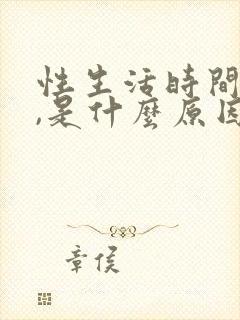 性生活時間
,是什麼原因
章侯